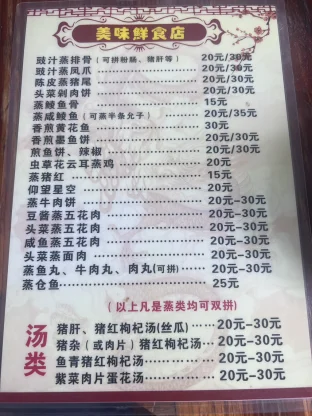 美味鲜食店
豉汁蒸排骨（可拼粉肠、猪肝等） 20元/30元
豉汁蒸凤爪 20元/30元
陈皮蒸猪尾 20元/30元
头菜剁肉饼 20元/30元
蒸鳗鱼骨 15元
蒸咸鳗鱼（可蒸半条允子） 20元/35元
香煎黄花鱼 30元
香煎墨鱼饼 20元/30元
煎鱼饼、辣椒 20元/30元
虫草花云耳蒸鸡 20元
蒸猪红 15元
仰望星空 20元
蒸牛肉饼 20元-30元
豆酱蒸五花肉 20元-30元
头菜蒸五花肉 20元-30元
咸鱼蒸五花肉 20元-30元
头菜蒸面肉 20元-30元
蒸鱼丸、牛肉丸、肉丸(可拼) 20元-30元
蒸仓鱼 25元
（以上凡是蒸类均可双拼）
汤类
猪肝、猪红枸杞汤(丝瓜) 20元-30元
猪杂（或肉片）猪红枸杞汤 20元-30元
鱼青猪红枸杞汤 20元-30元
紫菜肉片蛋花汤 20元-30元